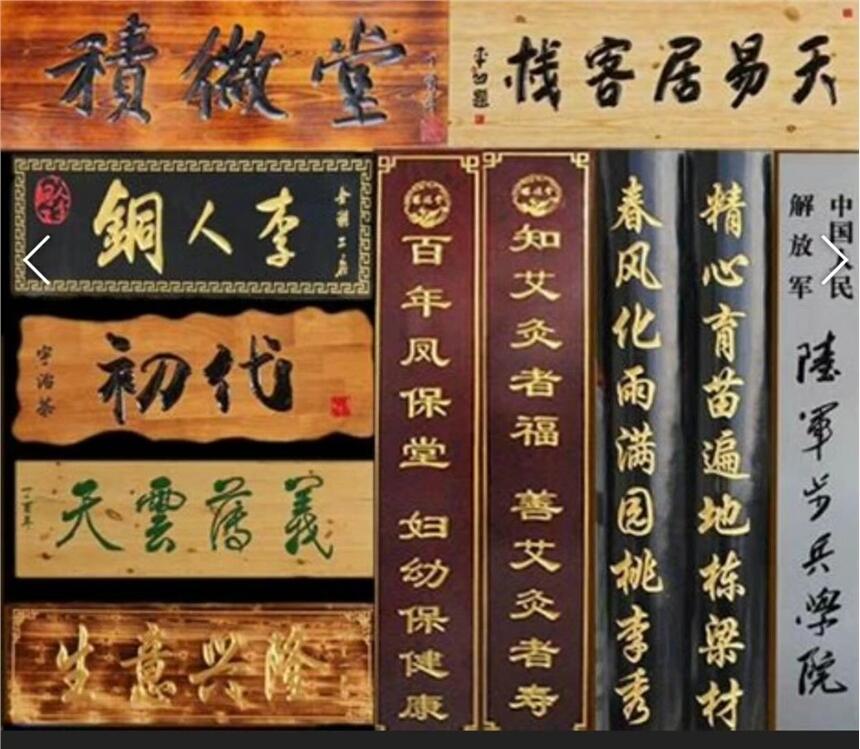 積微堂
天易居客栈
銅人李
初代
宇治茶
義薄雲天
丁酉年
生意兴隆
百年凤保堂 妇幼保健康
知艾灸者福 善艾灸者寿
春风化雨满园桃李秀
精心育苗遍地栋梁材
中国人民
解放军
陸軍步兵學院